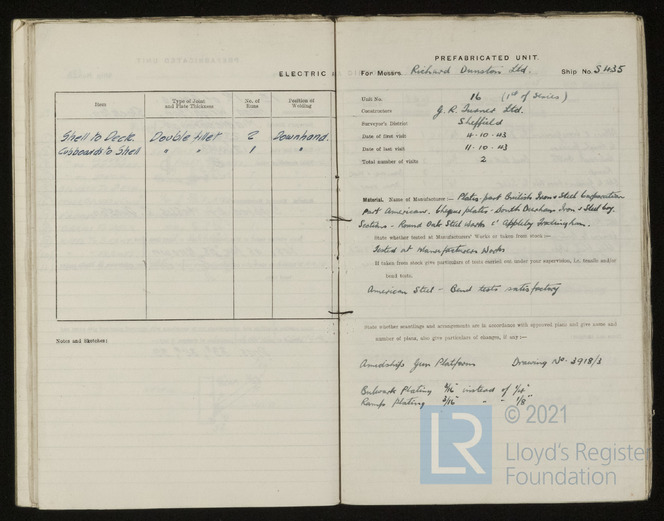 ELECTRIC
Item
Type of Joint and Plate Thickness
No. of Runs
Position of Welding
Shell to Deck. Double fillet 2 Downhand.
Cupboards to Shell " " 1 "
Notes and Sketches:
PREFABRICATED UNIT.
For Messrs. Richard Dunston Ltd. Ship No. S435
Unit No. 16 (1st of series)
Constructors J. R. Ltd.
Surveyor's District Sheffield
Date of first visit 4-10-43
Date of last visit 11-10-43
Total number of visits 2
Material. Name of Manufacture :— Plates part British Iron & Steel Corporation
part American. Chequer plates - South Durham Iron & Steel Coy.
Sections - Round Oak Steel Works & Appleby Frodingham.
State whether tested at Manufacturers' Works or taken from stock :—
Tested at Manufacturers Works
If taken from stock give particulars of tests carried out under your supervision, i.e. tensile and/or
bend tests.
American Steel - Bend tests satisfactory
State whether scantlings and arrangements are in accordance with approved plans and give name and
number of plans, also give particulars of changes, if any :—
Amidships Gun Platform Drawing No. 3918/3
Bulwark Plating 3/16" instead of
Ramps Plating 3/16" " " 1/8"
LR
© 2021
Lloyd's Register
Foundation